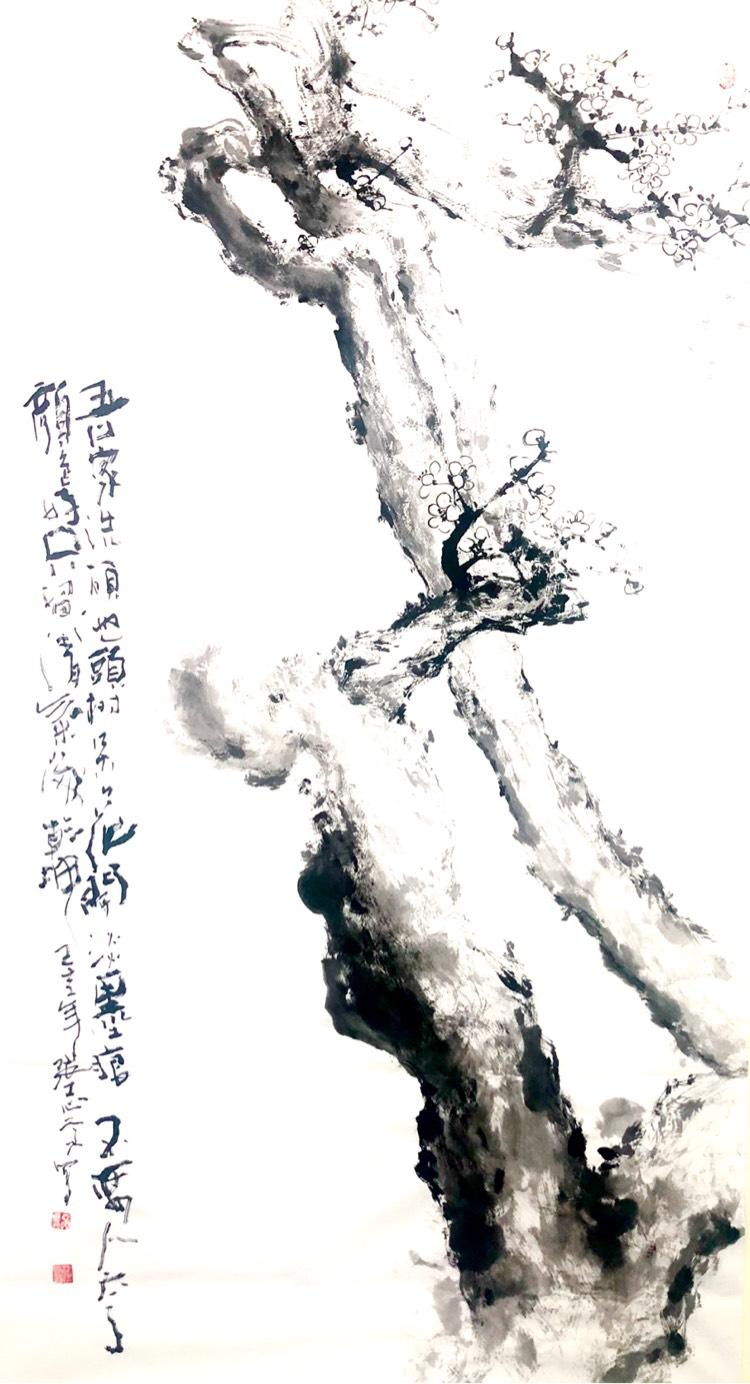 吾家洗硯池頭樹朵朵花開淡墨痕不要人誇
顏色好只留清氣滿乾坤 年張志文寫